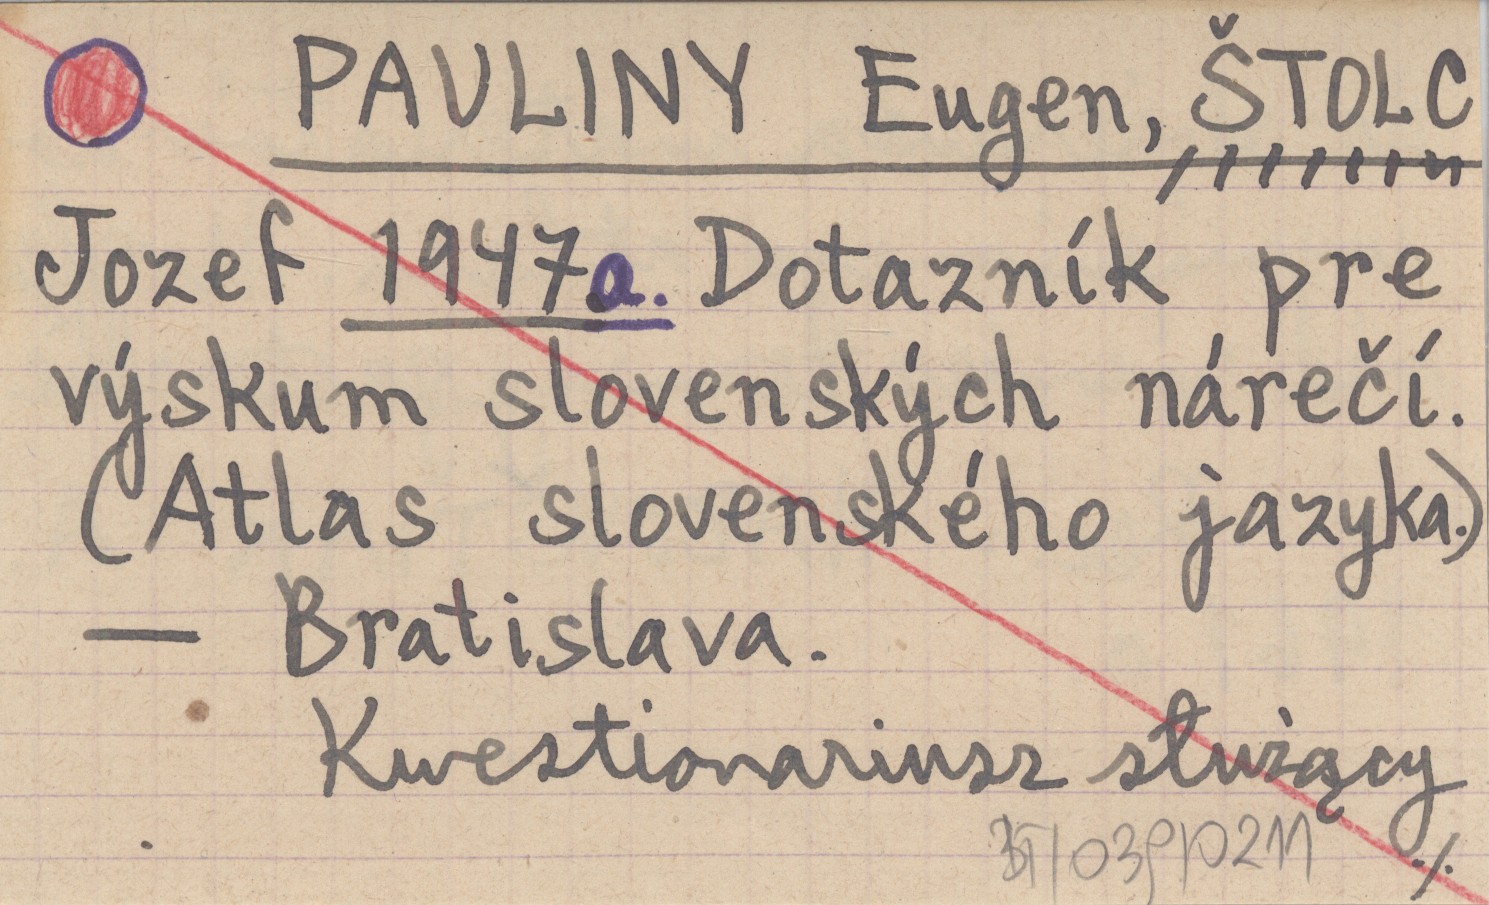 PAULINY Eugen, ŠTOLC
Jozef 1947a. Dotazník pre
výskum slovenských nárečí.
(Atlas slovenského jazyka.)
— Bratislava.
Kwestionariusz służący
./.